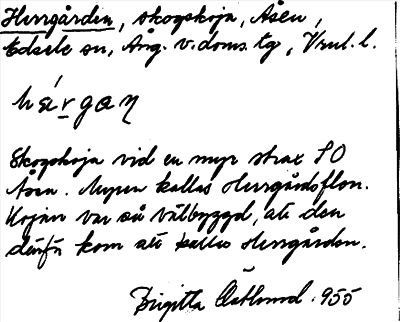 Herrgården, skogskoja, Åsen,
Edsele sn, Ång. v. doms. tg, Vnl. l.
härgaɳ
Skogskoja vid en myr strax SO
Åsen. Myren kallas Herrgårdsflon.
Kojan var så välbyggd, att den
därför kom att kallas Herrgården.
Birgitta Östlund. 1955